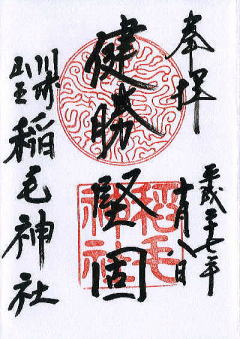 奉拝
平成二十七年
十月八日
健勝
堅固
川崎
山王
稲毛神社
稲毛
神社